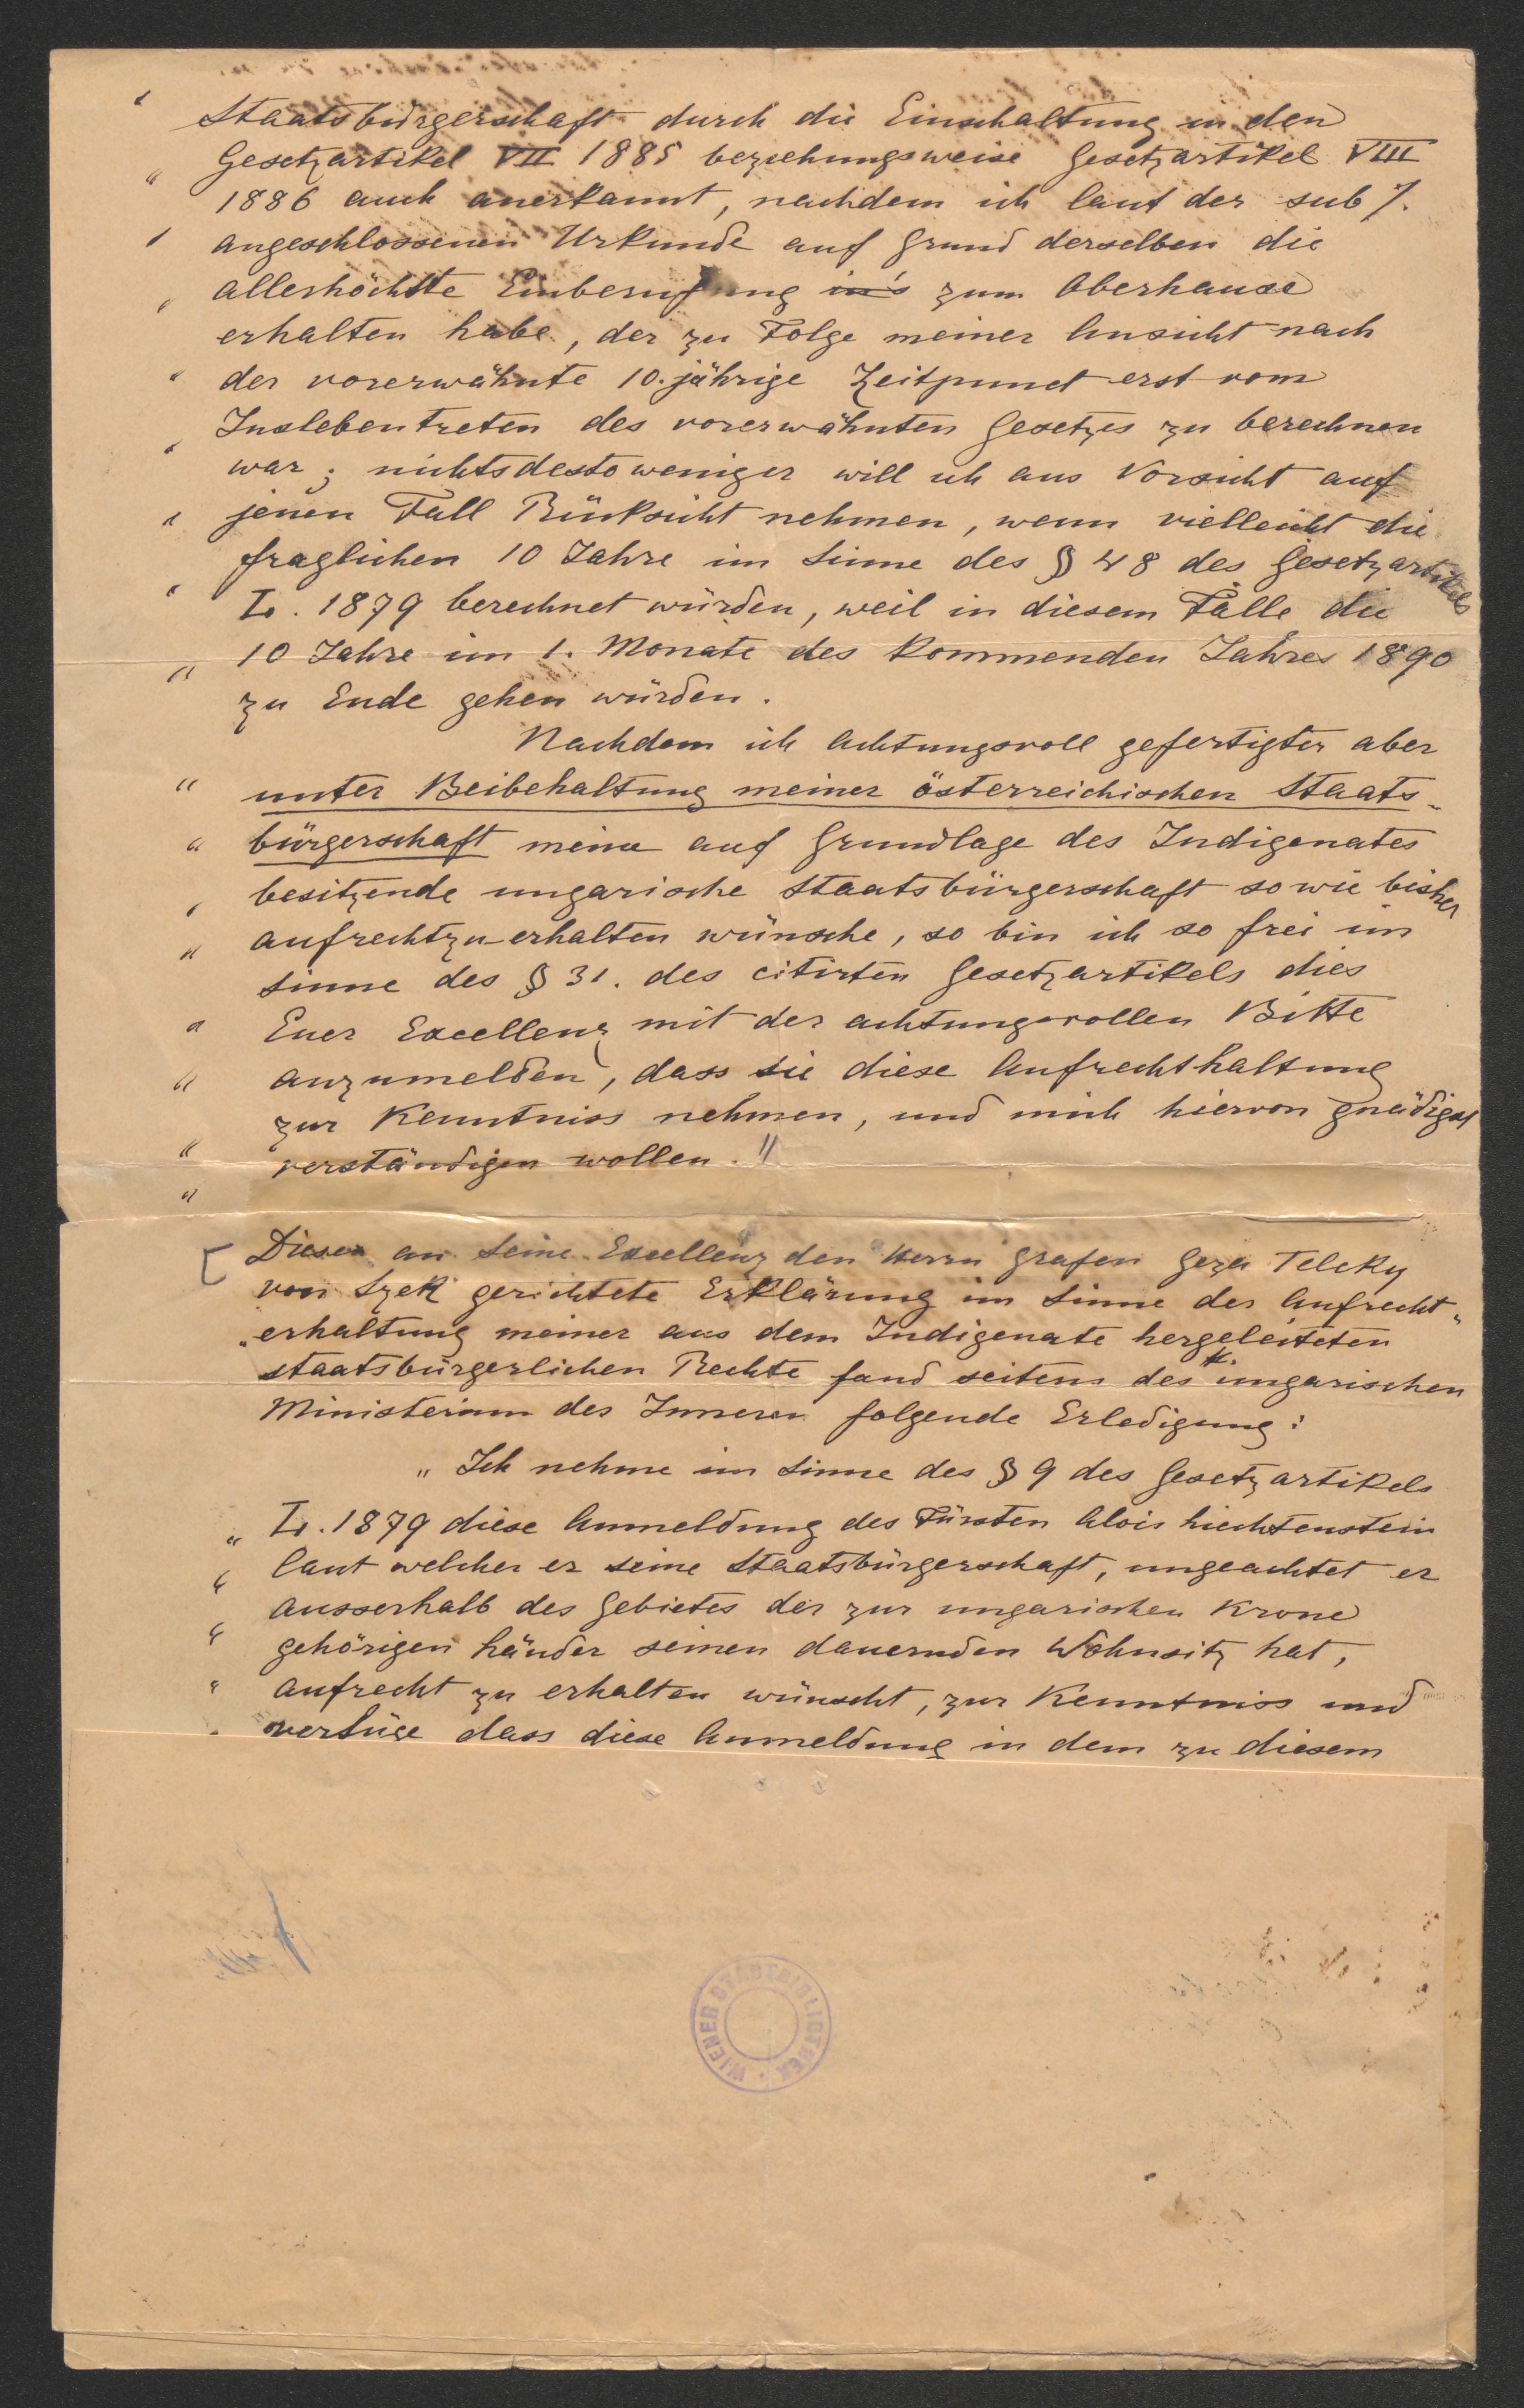 " Staatsbürgerschaft durch die Einschaltung in den
" Gesetzartikel VII 1885 beziehungsweise Gesetzartikel VIII
1886 auch anerkannt, nachdem ich laut der sub /.
" angeschlossenen Urkunde auf Grund derselben die
" allerhöchste Einberufung in's zum Oberhause
erhalten habe, der zu Folge meiner Ansicht nach
" der vorerwähnte 10. jährige Zeitpunct erst vom
" Inslebentreten des vorerwähnten Gesetzes zu berechnen
war; nichtsdestoweniger will ich aus Vorsicht auf
" jenen Fall Rücksicht nehmen, wenn vielleicht die
fraglichen 10 Jahre im Sinne des § 48 des Gesetzartikels
" L. 1879 berechnet würden, weil in diesem Falle die
" 10 Jahre im 1. Monate des kommenden Jahres 1890
zu Ende gehen würden.
Nachdem ich achtungsvoll gefertigter aber
" unter Beibehaltung meiner österreichischen Staats-
" bürgerschaft meine auf Grundlage des Indigenates
" besitzende ungarische Staatsbürgerschaft sowie bisher
" aufrechtzuerhalten wünsche, so bin ich so frei im
Sinne des § 31. des citirten Gesetzartikels dies
" Euer Excellenz mit der achtungsvollen Bitte
" anzumelden, dass sie diese Aufrechthaltung
zur Kenntniss nehmen, und mich hiervon gnädigst
" verständigen wollen."
"
[ Diese an Seine Excellenz den Herrn Grafen Geza Teleky
von Szek gerichtete Erklärung im Sinne der Aufrecht-
erhaltung meiner aus dem Indigenate hergeleiteten
staatsbürgerlichen Rechte fand seitens des k. ungarischen
Ministerium des Inneren folgende Erledigung:
" Ich nehme im Sinne des § 9 des Gesetzartikels
" L. 1879 diese Anmeldung des Fürsten Alois Liechtenstein
" laut welcher er seine Staatsbürgerschaft, ungeachtet er
ausserhalb des Gebietes der zur ungarischen Krone
" gehörigen Länder seinen dauernden Wohnsitz hat,
" aufrecht zu erhalten wünscht, zur Kenntniss und
" verfüge dass diese Anmeldung in dem zu diesem
WIENER STADTBIBLIOTHEK